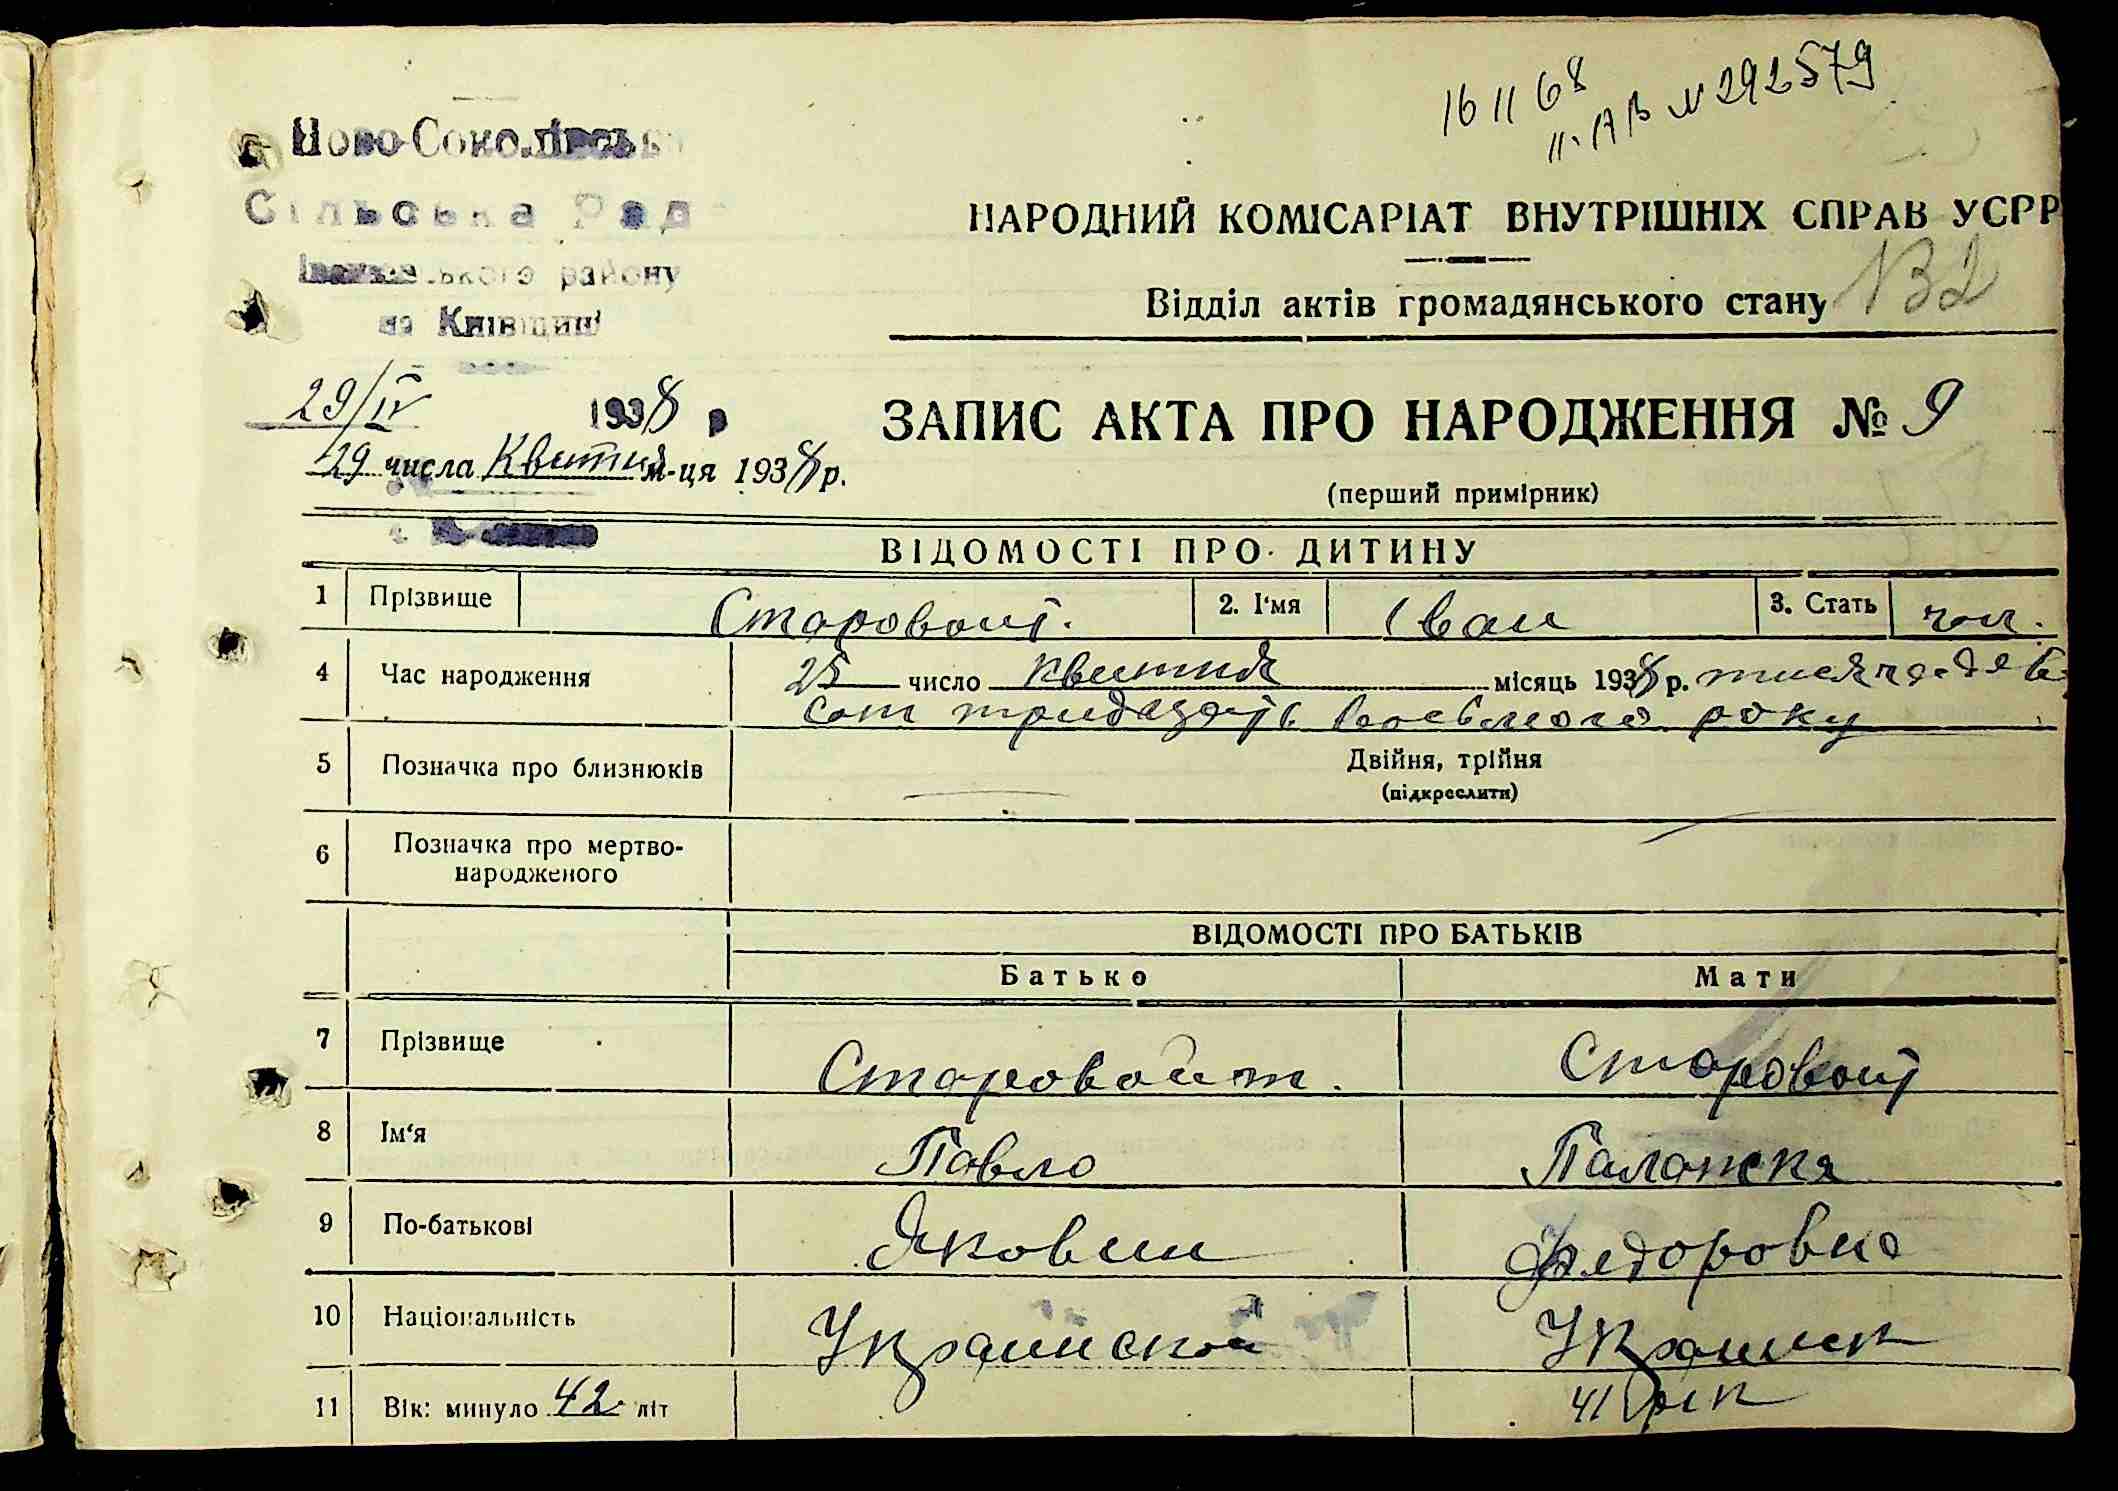 16 11 68
II-АВ № 292579
Ново-Соколівська
Сільська Рад
району
на Київщині
НАРОДНИЙ КОМІСАРІАТ ВНУТРІШНІХ СПРАВ УСРР
132
Відділ актів громадянського стану
29/IV 1938 р
ЗАПИС АКТА ПРО НАРОДЖЕННЯ № 9
29 числа Квитня м-ця 1938 р.
(перший примірник)
ВІДОМОСТІ ПРО ДИТИНУ
1 Прізвище Старовоит. 2. І'мя Іван 3. Стать чол.
4 Час народження 25 число квитня місяць 1938 р. тисяча девя
сот тридцять восьмого року
5 Позначка про близнюків Двійня, трійня
(підкреслити)
6 Позначка про мертво-
народженого
ВІДОМОСТІ ПРО БАТЬКІВ
Батько Мати
7 Прізвище Старовоит. Старовоит
8 Ім'я Павло Палажка
9 По-батькові Якович Федоровна
10 Національність
11 Вік: минуло 42 літ 41 рік